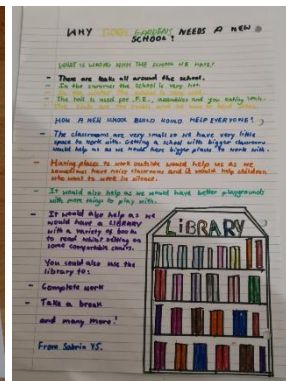 WHY GARDENS NEEDS A NEW
SCHOOL!
WHAT IS WRONG WITH THE SCHOOL WE HAVE?
- There are leaks all around the school.
- In the summer the school is very hot.
- The hall is used for P.E., assemblies and
HOW A NEW SCHOOL BUILD WOULD HELP EVERYONE!
- The classrooms are very small so we have very little
space to work with. Getting a school with bigger classrooms
would help us as we would have bigger places to work with.
- Having places to work outside would help us as we
sometimes have noisy classrooms and it would help children
who want to work in silence.
- It would also help as we would have better playgrounds
with more things to play with.
- It would also help as we
would have a LIBRARY
with a variety of books
to read whilst sitting on
some comfortable chairs.
You could also use the
library to:
- Complete work
- Take a break
and many more!
From Sabrin Y5.
LIBRARY